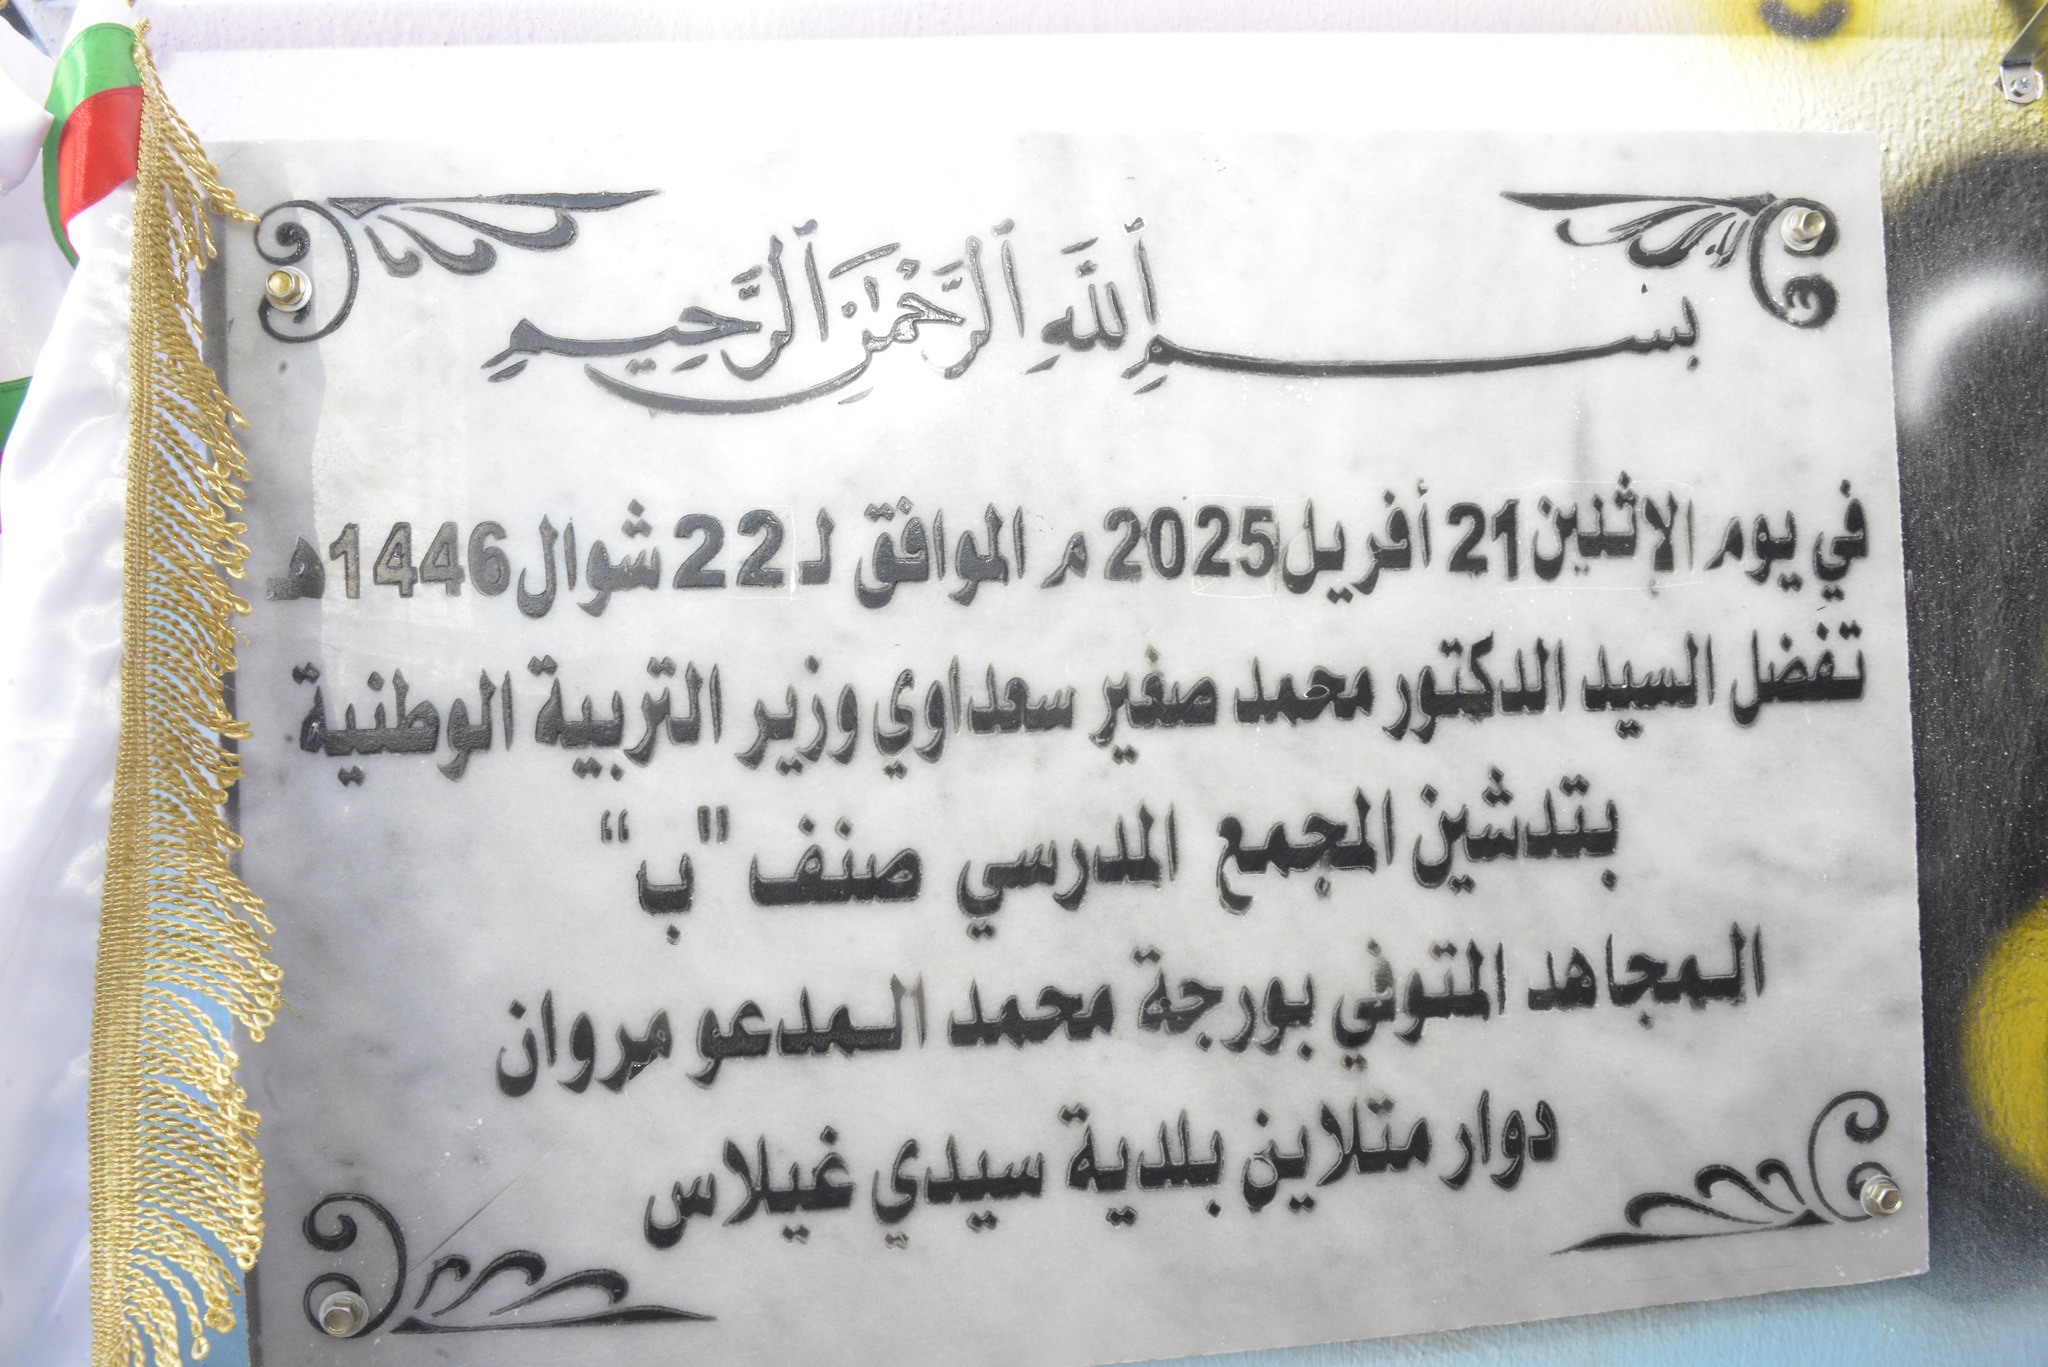 بسم ٱللَّهِ ٱلرَّحْمَٰنِ ٱلرَّحِيمِ
في يوم الإثنين 21 أفريل 2025 م الموافق لـ 22 شوال 1446هـ
تفضل السيد الدكتور محمد صغير سعداوي وزير التربية الوطنية
بتدشين المجمع المدرسي صنف "ب"
المجاهد المتوفي بورجة محمد الـمدعو مروان
دوار متلاين بلدية سيدي غيلاس